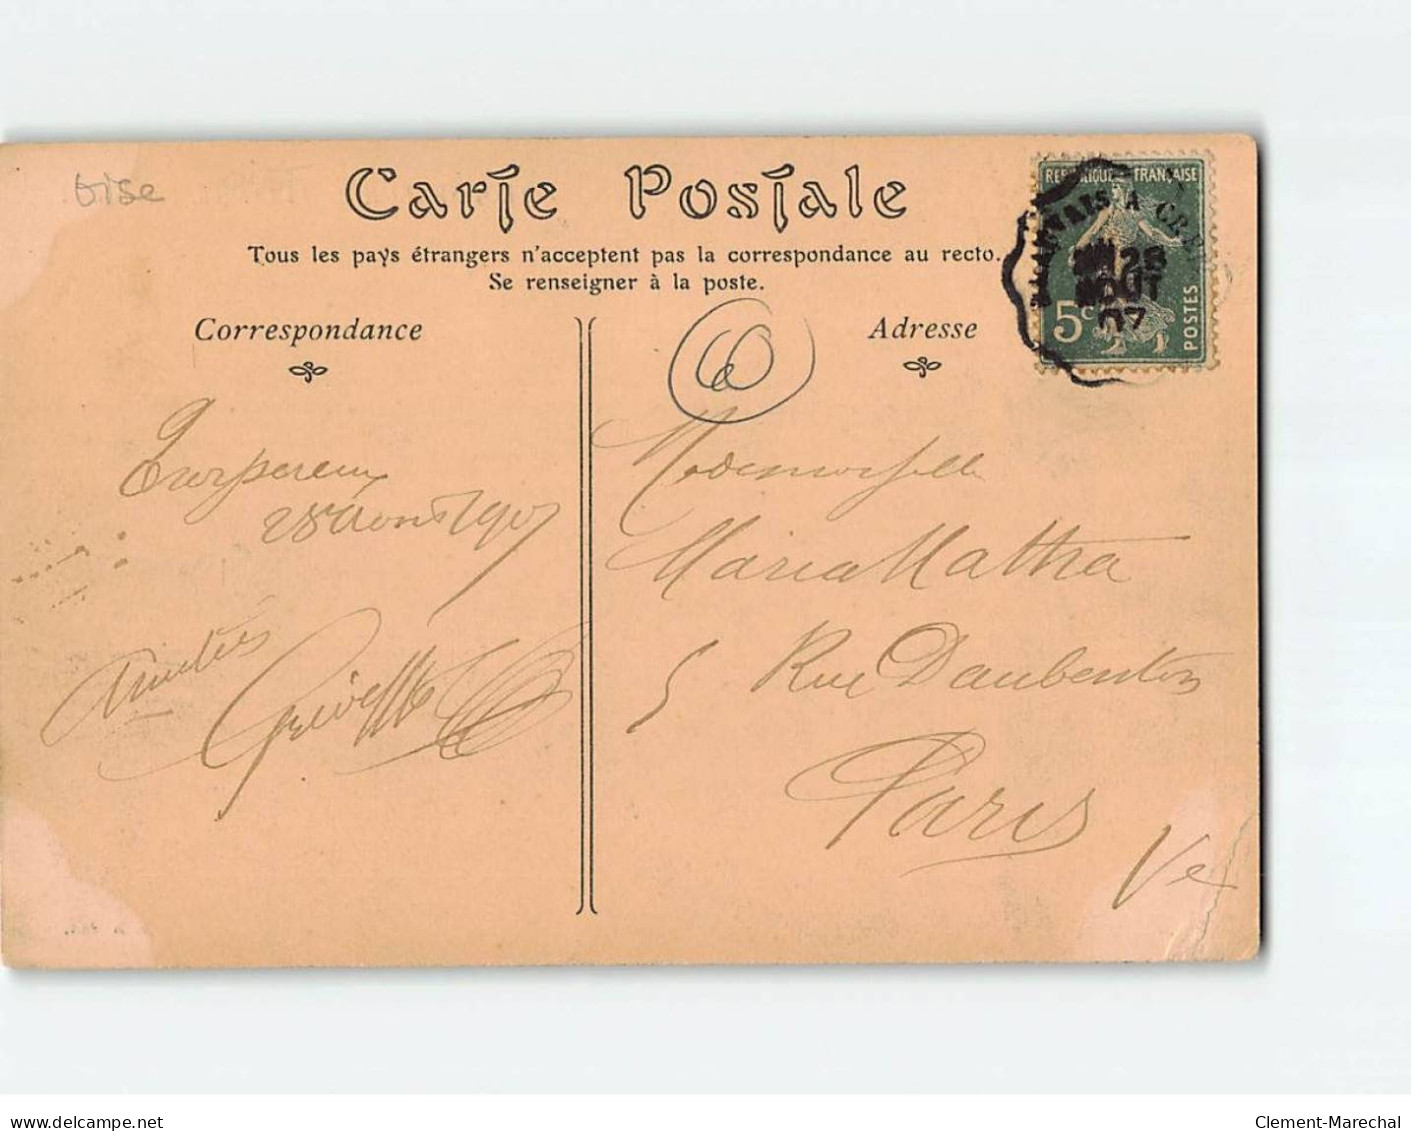 Oise
Carte Postale
Tous les pays étrangers n'acceptent pas la correspondance au recto.
Se renseigner à la poste.
Correspondance
Adresse
RÉPUBLIQUE FRANÇAISE
5c
POSTES
BEAUVAIS A CRE
28
AOUT
07
28 Aout 1907
Amitiés
Mademoiselle
Maria Matha
5 Rue Daubenton
Paris
Ve
delcampe.net
Clement-Marechal